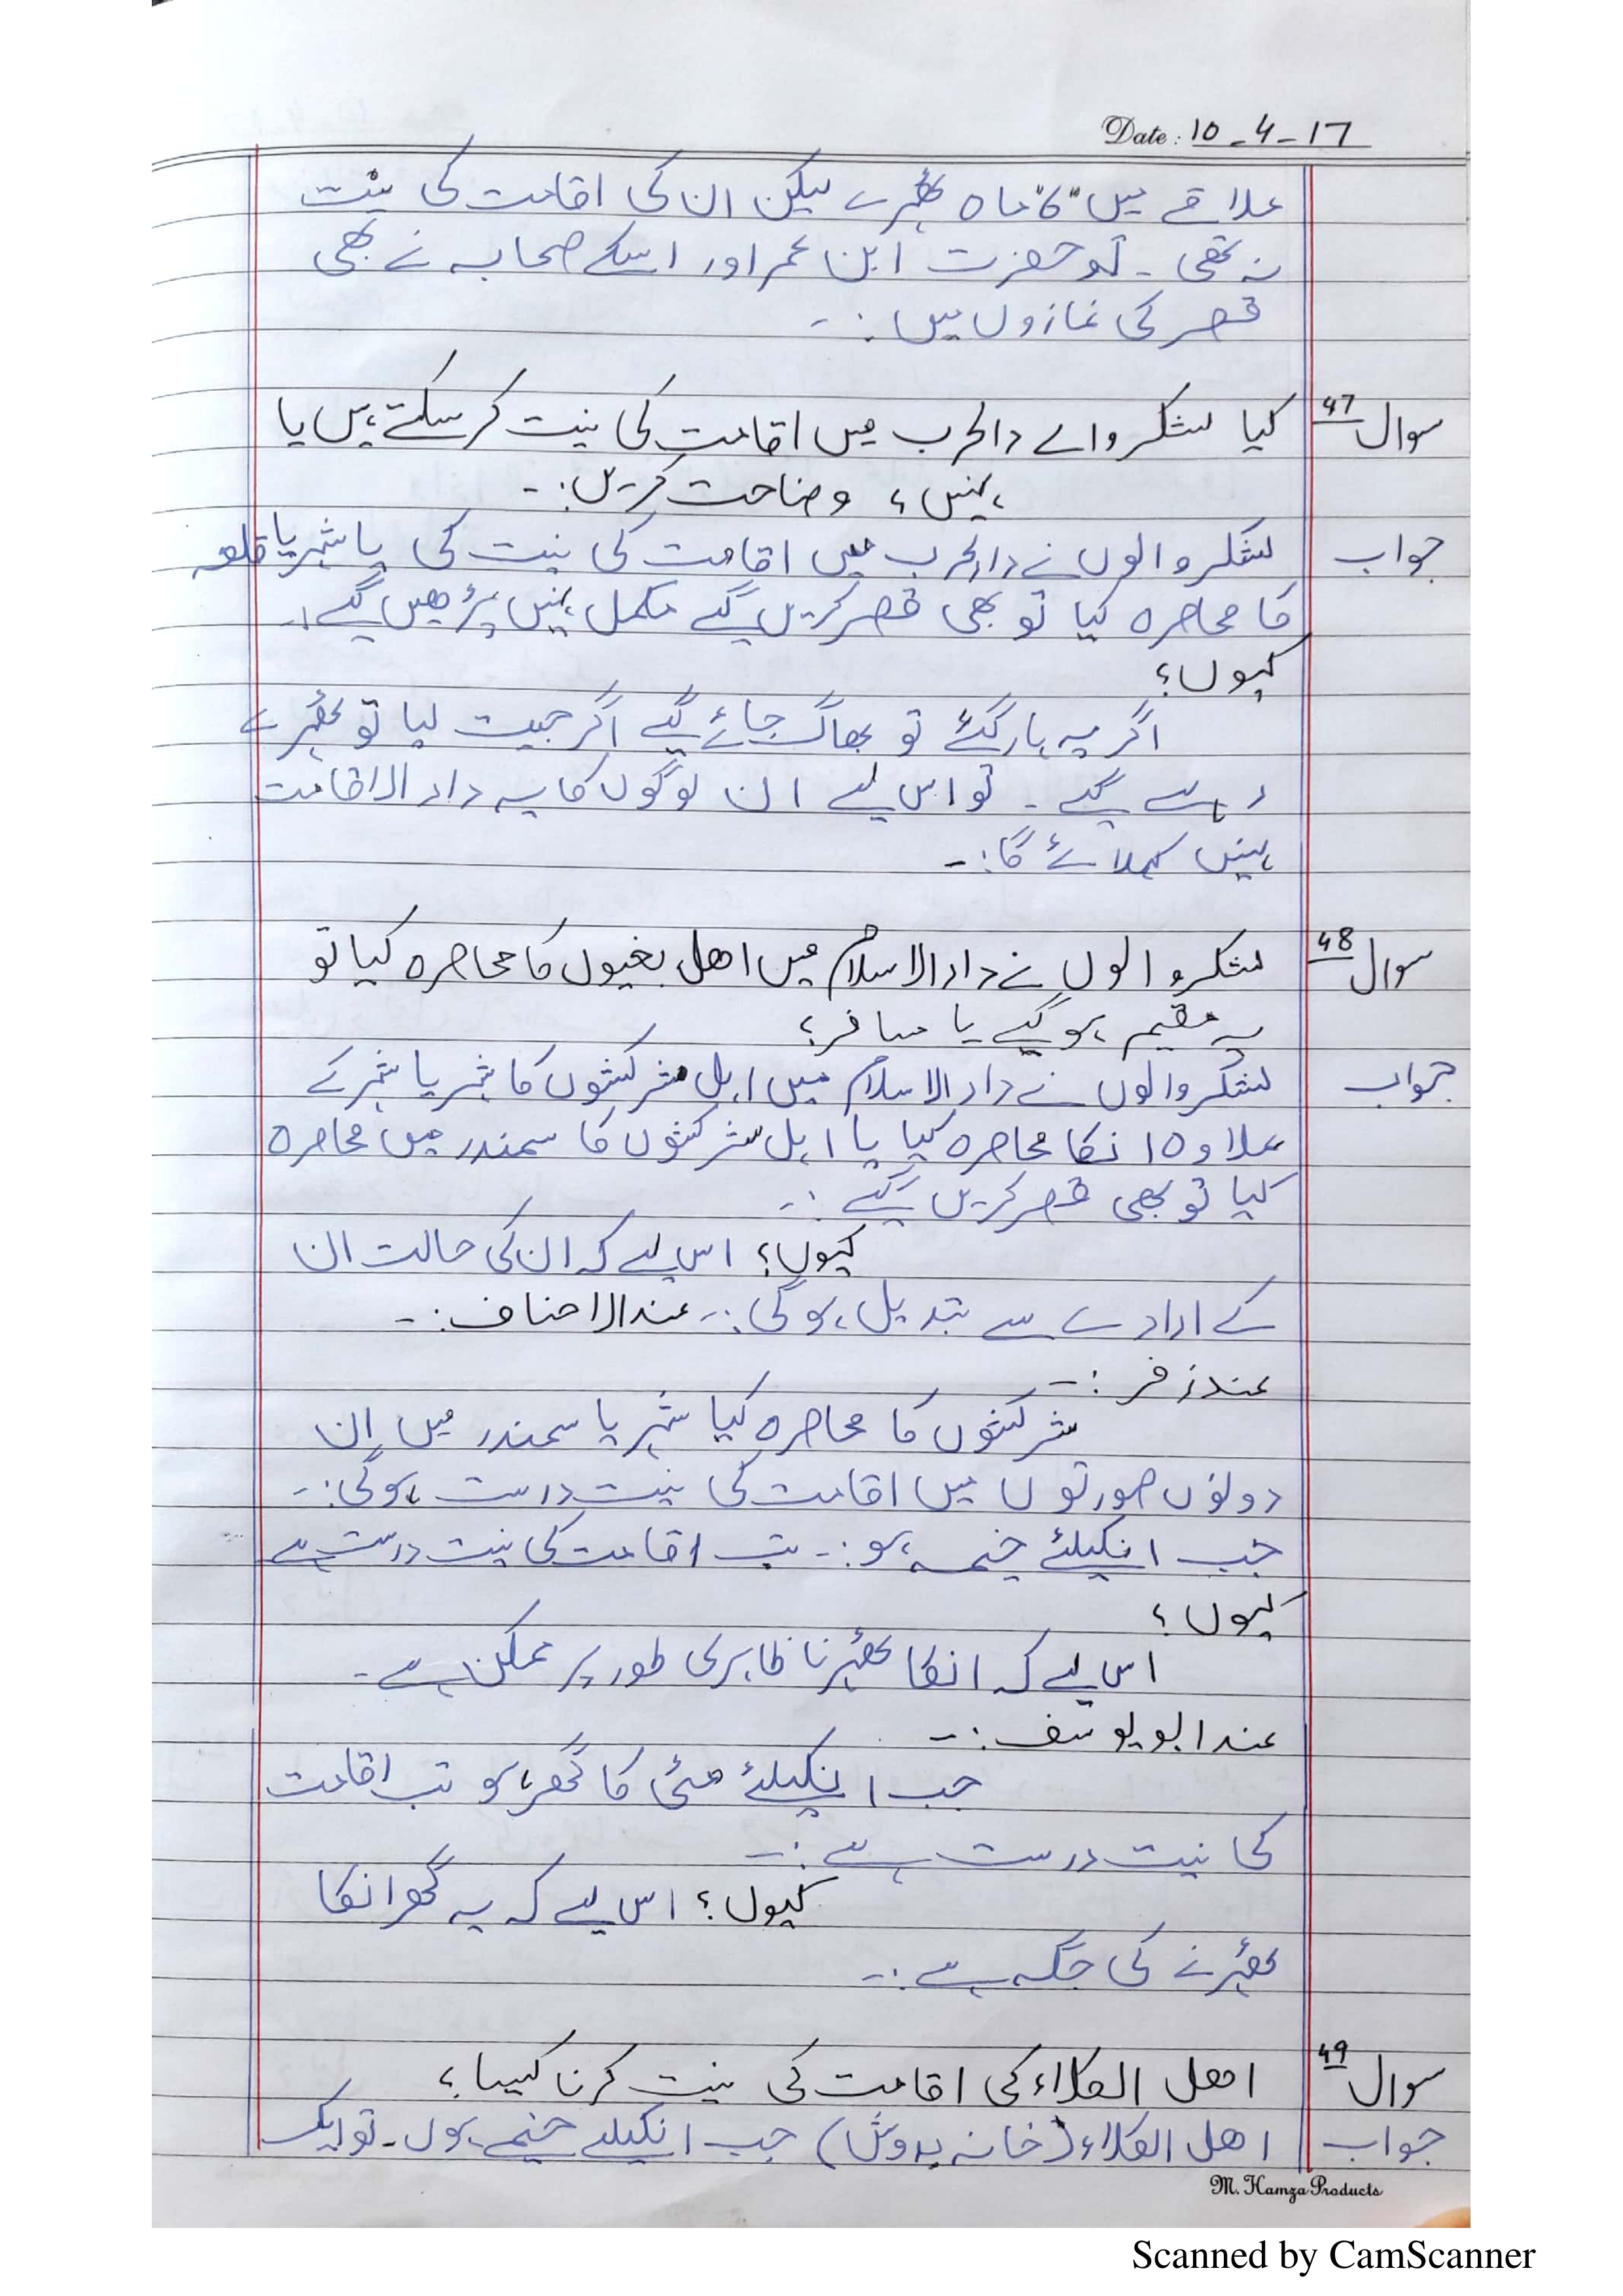 Date: 10-4-17
علاقے میں "6" ماہ ٹھہرے لیکن ان کی اقامت کی نیت
نہ تھی ۔ تو حضرت ابن عمر اور اسکے صحابہ نے بھی
قصر کی نمازوں میں :۔
سوال 47 کیا لشکر والے دالحرب میں اقامت کی نیت کر سکتے ہیں یا
نہیں ؟ وضاحت کریں :۔
جواب لشکر والوں نے دارلحرب میں اقامت کی نیت کی یا شہر یا قلعہ
کا محاصرہ کیا تو بھی قصر کریں گے مکمل نہیں پڑھیں گے :۔
کیوں؟
اگر یہ ہار گئے تو بھاگ جائے گے اگر جیت لیا تو ٹھہرے
رہے گے ۔ تو اس لیے ان لوگوں کا یہ دار الاقامت
نہیں کہلائے گا :۔
سوال 48 لشکر والوں نے دار الاسلام میں اھل بغیوں کا محاصرہ کیا تو
یہ مقیم ہو گیے یا مسافر؟
جواب لشکر والوں نے دار الاسلام میں اہل سر کشوں کا شہر یا شہر کے
علاوہ انکا محاصرہ کیا یا اہل سر کشوں کا سمندر میں محاصرہ
کیا تو بھی قصر کریں گیے :۔
کیوں؟ اس لیے کہ ان کی حالت ان
کے ارادے سے تبدیل ہو گی :۔ عند الاحناف :۔
عند زفر :۔
سر کشوں کا محاصرہ کیا شہر یا سمندر میں ان
دونوں صورتوں میں اقامت کی نیت درست ہو گی :۔
جب انکیلئے خیمہ ہو :۔ تب اقامت کی نیت درست ہے
کیوں ؟
اس لیے کہ انکا ٹھہرنا ظاہری طور پر ممکن ہے ۔
عند ابو یوسف :۔
جب انکیلئے مٹی کا گھر ہو تب اقامت
کی نیت درست ہے :۔
کیوں؟ اس لیے کہ یہ گھر انکا
ٹھہرنے کی جگہ ہے :۔
سوال 49 اھل الکلاء کی اقامت کی نیت کرنا کیسا ؟
جواب اھل الکلاء (خانہ بدوش) جب انکیلیے خیمے ہوں ۔ تو ایک
M. Hamza Products
Scanned by CamScanner